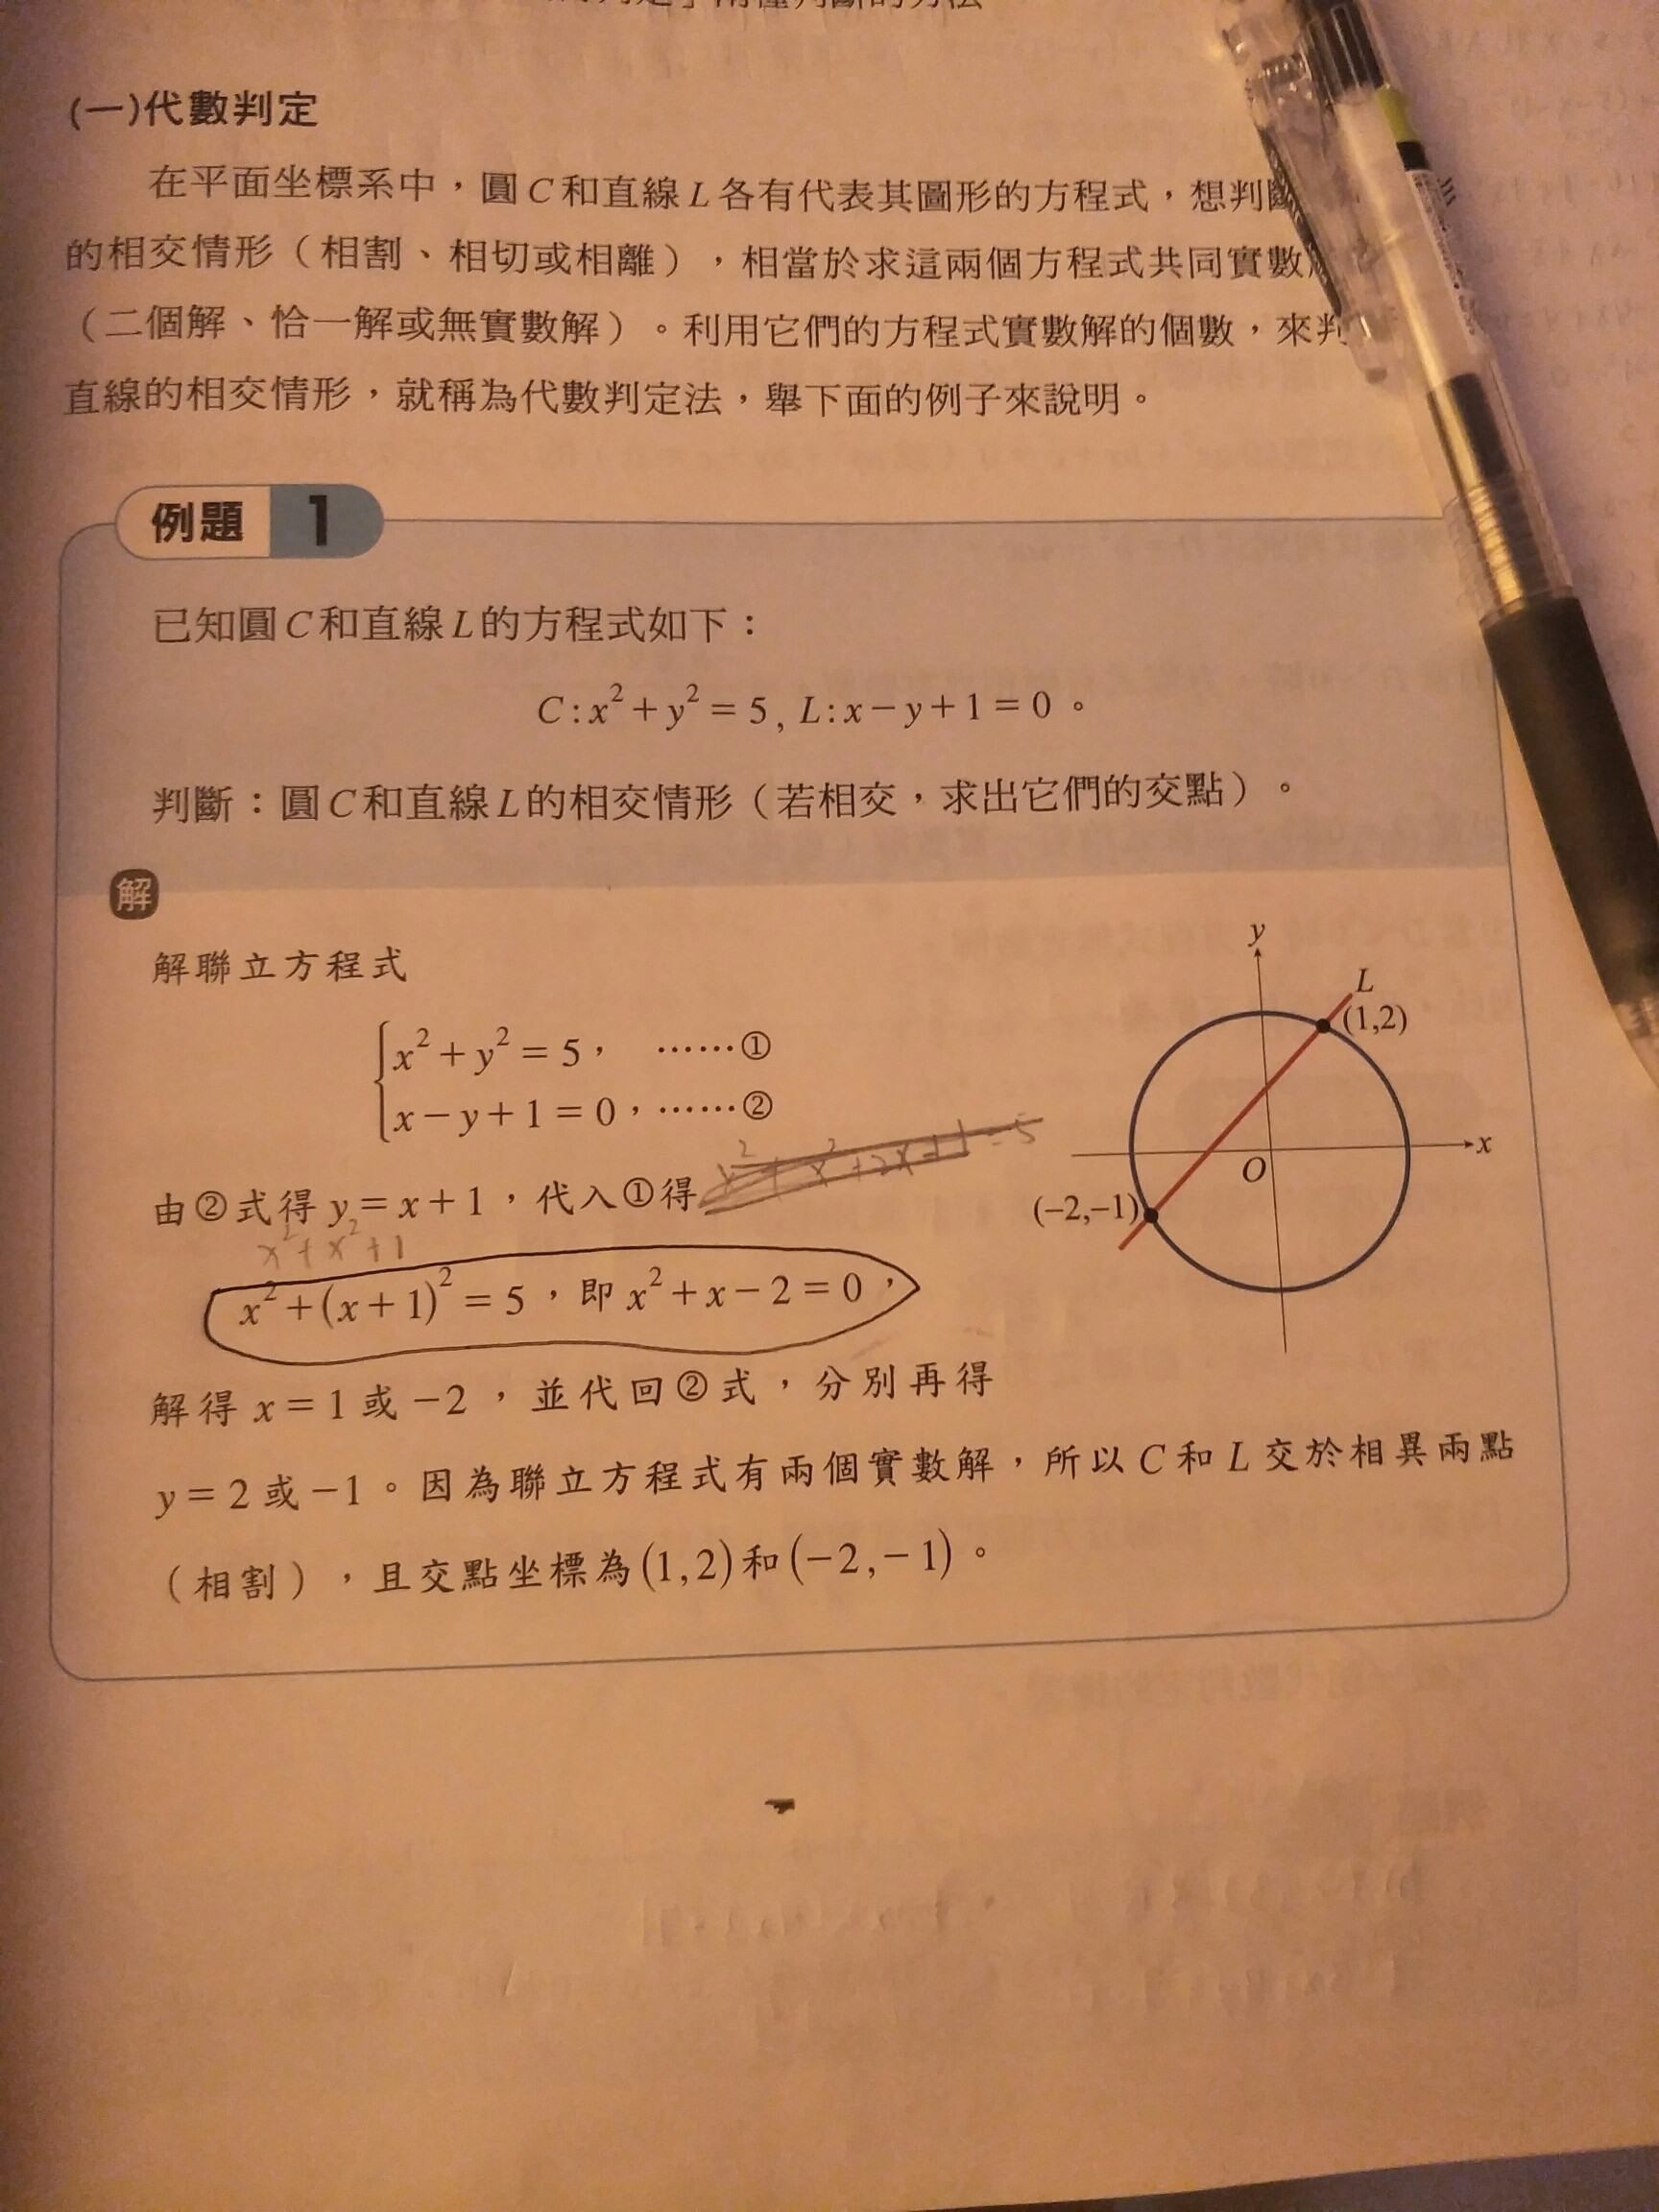 (一)代數判定
在平面坐標系中，圓C和直線L各有代表其圖形的方程式，想判斷
的相交情形（相割、相切或相離），相當於求這兩個方程式共同實數
（二個解、恰一解或無實數解）。利用它們的方程式實數解的個數，來判
直線的相交情形，就稱為代數判定法，舉下面的例子來說明。
例題 1
已知圓C和直線L的方程式如下：
C:x²+y²=5, L:x−y+1=0。
判斷：圓C和直線L的相交情形（若相交，求出它們的交點）。
解
解聯立方程式
x²+y²=5， ……①
x−y+1=0，……②
由②式得y=x+1，代入①得 x²+x²+2x+1=5
x²+x²+1
x²+(x+1)²=5，即x²+x−2=0，
解得x=1或−2，並代回②式，分別再得
y=2或−1。因為聯立方程式有兩個實數解，所以C和L交於相異兩點
（相割），且交點坐標為(1,2)和(−2,−1)。
y
L
(1,2)
x
O
(−2,−1)